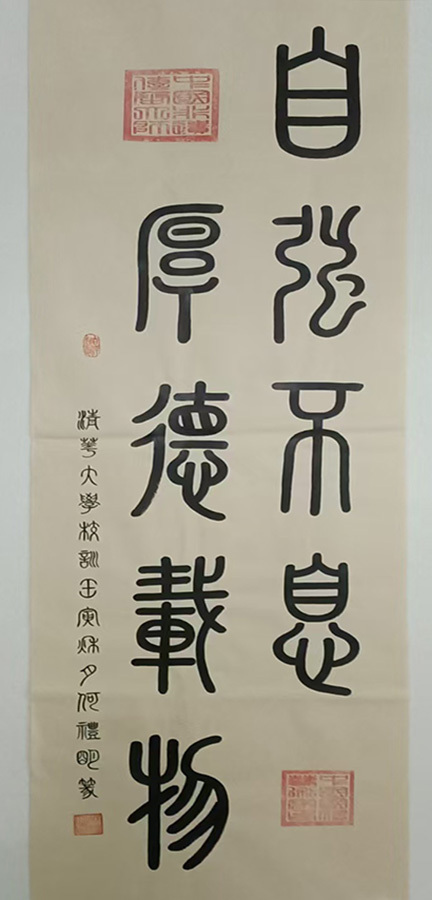 自强不息
厚德載物
清華大學校訓壬寅秋月何禮明篆